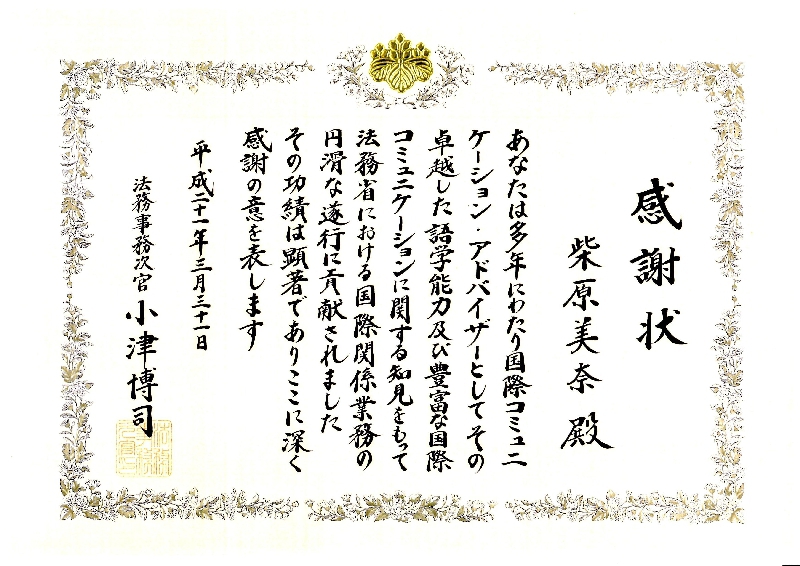 感謝状
柴原美奈 殿
あなたは多年にわたり国際コミュニ
ケーション・アドバイザーとしてその
卓越した語学能力及び豊富な国際
コミュニケーションに関する知見をもって
法務省における国際関係業務の
円滑な遂行に貢献されました
その功績は顕著でありここに深く
感謝の意を表します
平成二十一年三月三十一日
法務事務次官 小津博司